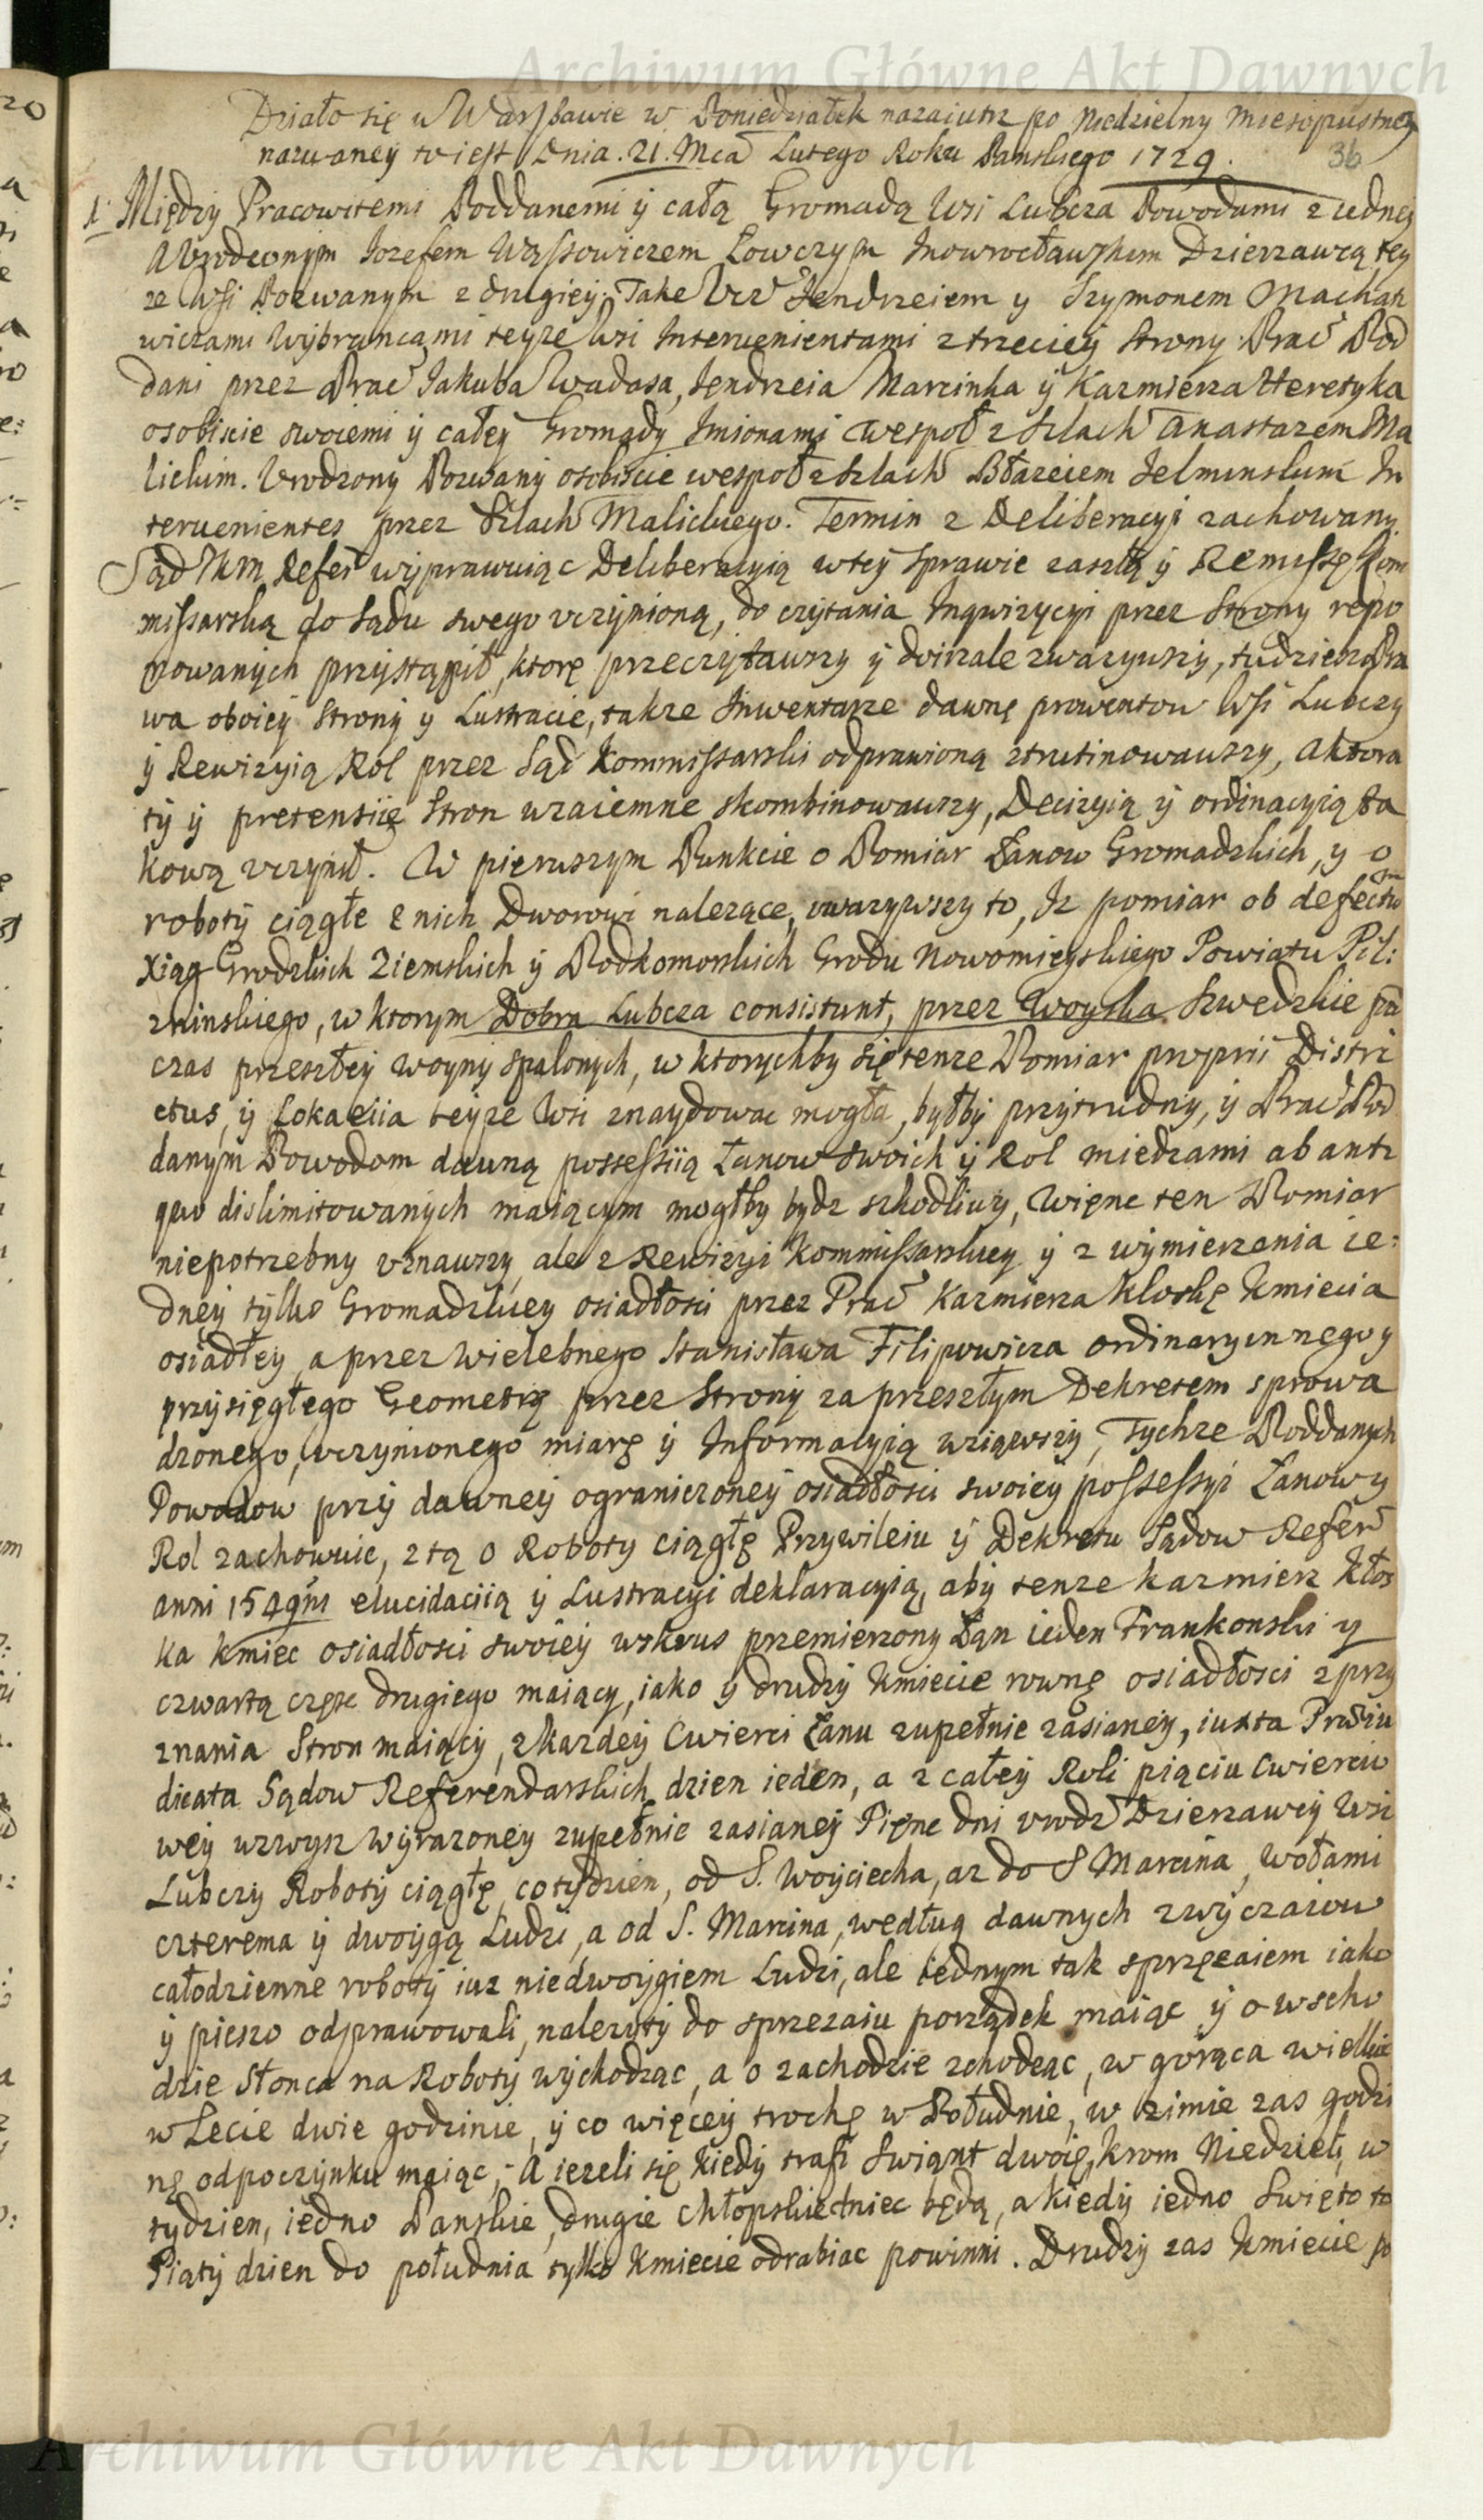 Archiwum Główne Akt Dawnych
Działo się w Warszawie w Poniedziałek nazaiutrz po Niedzielny Miesopustney
nazwaney to iest Dnia .21. Mca Lutego Roku Panskiego 1729.
36
1. Między Pracowitemi Poddanemi ÿ całą Gromadą Wsi Lubcza Powodami z iedney
a Vrodzonym Iozefem Wąssowiczem Łowczym Inowrocławskim Dzierzawcą tey
ze Wsi Pozwanym z drugiey. Takze Vcz Iendrzeiem y Szymonem Machat
wiczami Wybrancami teyze Wsi Interuenientami z trzeciey Strony Prac Pod
dani przez Prac Iakuba Wadasa, Iendrzeia Marcinka ÿ Kazmierza Heretyka
osobiscie swoiemi ÿ całey Gromady Imionami wespoł z Szlach Anastazem Ma
lickim. Vrodzony Pozwany osobiscie wespoł z Szlach Błazeiem Ielminskim In
teruenientes przez Szlach Malickiego. Termin z Deliberacyi zachowany
Sąd IKM Refer wyprawuiąc Deliberacyią w tey Sprawie zaszłą ÿ Remissę Kom
missarską do Sądu swego vczynioną, do czytania Inqwizycyi przez Strony repo
nowanych przystąpił, ktorę przeczytawszy ÿ doirzale zwazywszy, tudziesz Pra
wa oboiey Strony y Lustracie, takze Inwentarze dawnę prowentow Wsi Lubczy
ÿ Rewizyią Rol przez Sąd Kommissarski odprawioną ztrutinowawszy, aktora
ty ÿ pretensiię Stron wzaiemne skombinowawszy, Decizyią ÿ ordinacyią ta
kową vczynił. W pierwszym Punkcie o Pomiar Łanow Gromadzkich, y o
roboty ciągłe z nich Dworowi nalezące, vwazywszy to, Iz pomiar ob defectum
Xiąg Grodzkich Ziemskich ÿ Podkomorskich Grodu Nowomieyskiego Powiatu Pil:
zninskiego, w ktorym Dobra Lubcza consistunt, przez Woyska Szwedzkie pod
czas przeszłey woyny spalonych, w ktorychby się tenze Pomiar proprii Distri
ctus, ÿ Lokaciia teyze Wsi znaydowac mogła, byłby przytrudny, ÿ Prac Pod
danym Powodom dawną possessiią Łanow swoich ÿ Rol miedzami ab anti
quo dislimitowanych maiącym mogłby bydz szkodliwy, Więnc ten Pomiar
niepotrzebny vznawszy, ale z Rewizyi Kommissarskiey ÿ z wymierzenia ie:
dney tylko Gromadzkiey osiadłosci przez Prac Kazmierza Kloskę Kmiecia
osiadłey, a przez Wielebnego Stanisława Filipowicza ordinaryinnego y
przysięgłego Geometrę przez Strony za przeszłym Dekretem sprowa
dzonego, vczynionego miarę ÿ Informacyią wziąwszy, Tychze Poddanych
Powodow przy dawney ograniczoney osiadłosci swoiey possessyi Łanow y
Rol zachowuie, z tą o Roboty ciągłę Przywileiu ÿ Dekretu Sądow Refer
anni 1549ni elucidaciią ÿ Lustracyi deklaracyią, aby tenze Kazmierz Kłos
ka Kmiec osiadłosci swoiey wskrus przemierzony Łan ieden Frankonski y
czwartą częsc drugiego maiący, iako ÿ drudzy Kmiecie rownę osiadłosci z przy
znania Stron maiący, z kazdey Cwierci Łanu zupełnie zasianey, iuxta Praeiu
dicata Sądow Referendarskich dzien ieden, a z całey Roli piąciu cwierciw
wey wzwysz wyrazoney zupełnie zasianey Pięnc dni vrodz Dzierzawcy Wsi
Lubczy Roboty ciągłę co tydzien, od S. Woyciecha, az do S Marcina, wołami
czterema ÿ dwoygą Ludzi, a od S. Marcina, według dawnych zwyczaiow
całodzienne roboty iuz niedwoygiem Ludzi, ale iednym tak sprzęzaiem iako
ÿ pieszo odprawowali, nalezyty do sprzezaiu porządek maiąc ÿ o wscho
dzie Słonca na Roboty wychodząc, a o zachodzie zchodząc, w gorąca wielkie
w Lecie dwie godzinie, ÿ co więcey trochę w Południe, w zimie zas godzi
nę odpoczynku maiąc, A iezeli się kiedy trafi Swiąnt dwoię, krom Niedzieli, w
tydzien, iedno Panskie, drugie Chłopskie tniec będą, a kiedy iedno Swięto to
Piąty dzien do południa tylko Kmiecie odrabiac powinni. Drudzy zas Kmiecie po
Archiwum Główne Akt Dawnych